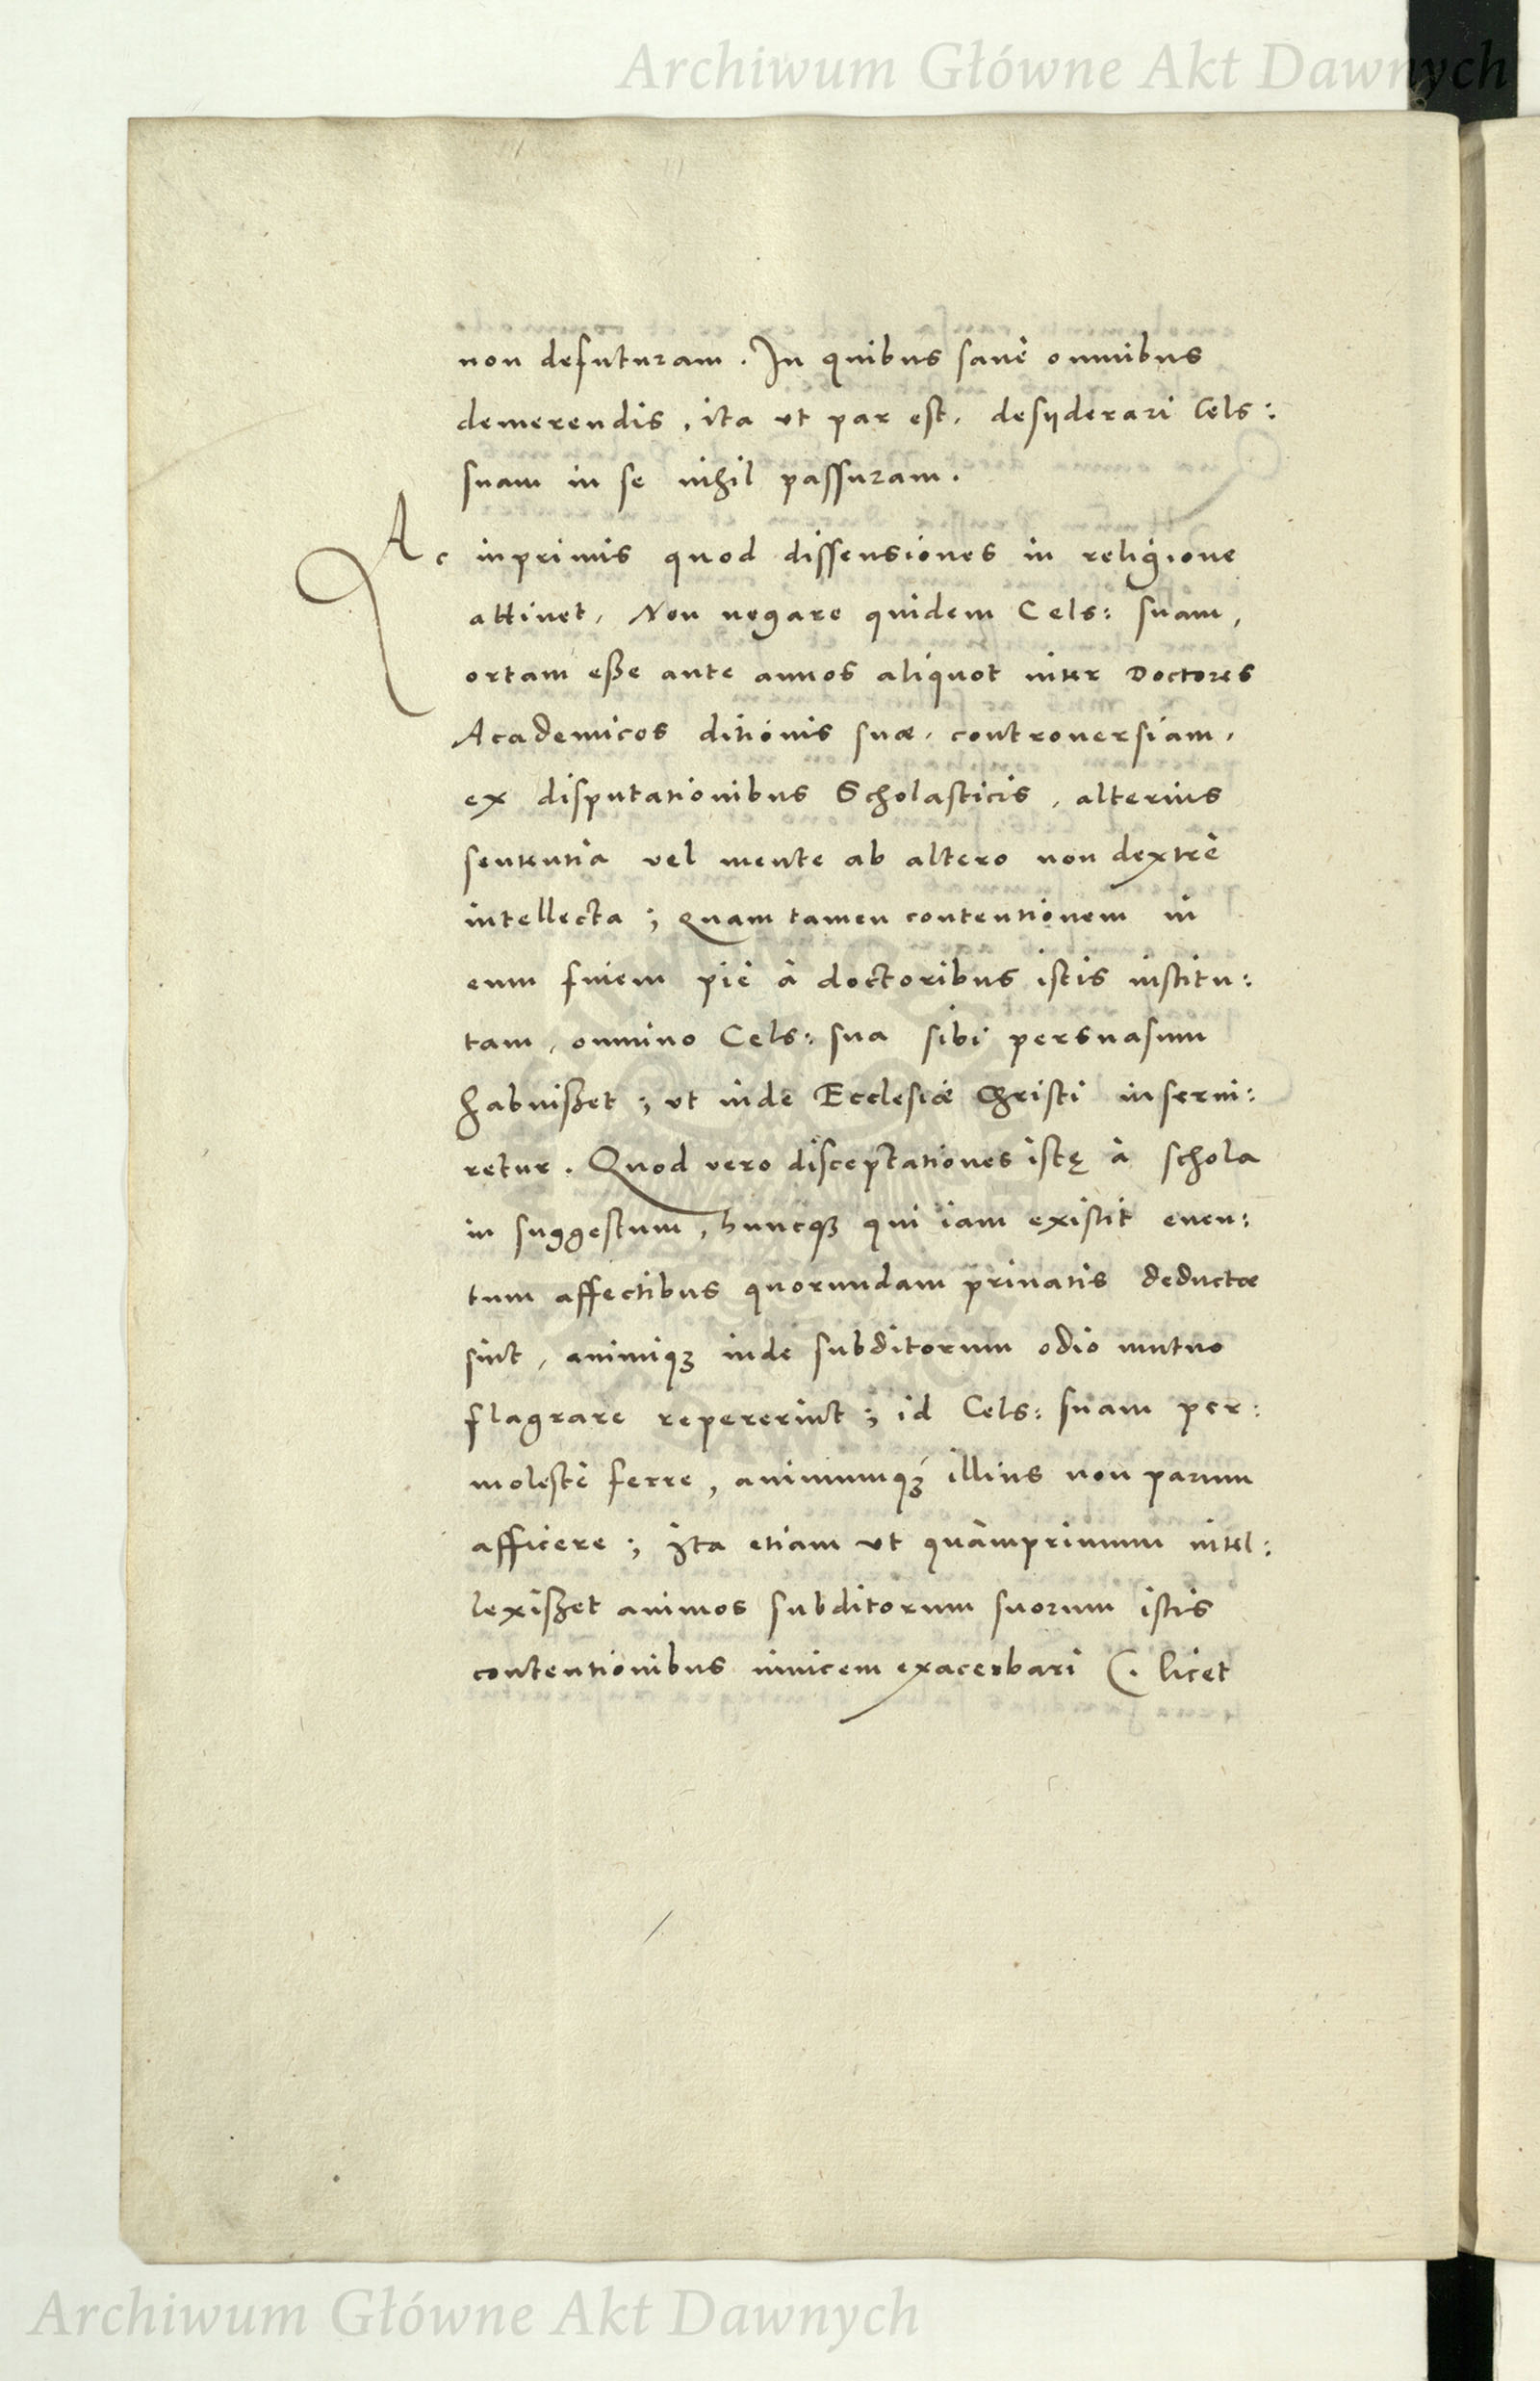 Archiwum Główne Akt Dawnych
non defuturam. In quibus sanè omnibus
demerendis, ita ut par est, desyderari Cels:
suam in se nihil passuram.
Ac inprimis quod dissensiones in religione
attinet, Non negare quidem Cels: suam,
ortam eße ante annos aliquot inter Doctores
Academicos ditionis suæ, controuersiam,
ex disputationibus Scholasticis, alterius
sententia vel mente ab altero non dextrè
intellecta; quam tamen contentionem in
eum finem piè à doctoribus istis institu:
tam, omnino Cels: sua sibi persuasum
habuißet; ut inde Ecclesiæ Christi inserui:
retur. Quod vero disceptationes istę à schola
in suggestum, huncq₃ qui iam existit euen:
tum affectibus quorundam priuatis deductæ
sint, animiq₃ inde subditorum odio mutuo
flagrare repererint; id Cels: suam per:
molestè ferre, animumq₃ illius non parum
afficere; Ita etiam ut quàmprimum intel:
lexißet animos subditorum suorum istis
contentionibus inuicem exacerbari (. licet
Archiwum Główne Akt Dawnych